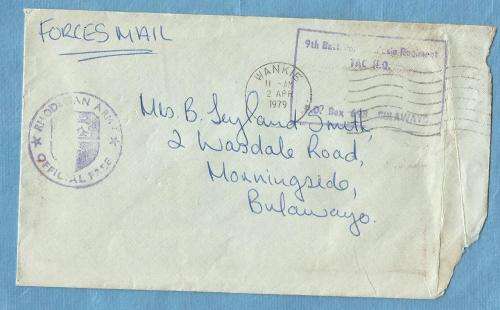 FORCES MAIL
9th Regiment
TAC H.Q.
P.O. Box
WANKIE
11 AM
2 APR
1979
★ RHODESIAN ARMY ★
OFFICIAL FREE
Mrs. B. Leyland Smith,
2 Wasdale Road,
Morningside,
Bulawayo.